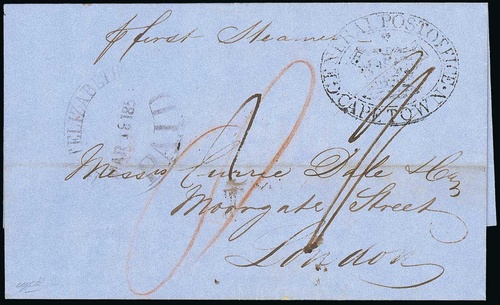 p first Steamer
GENERAL POST OFFICE
CAPE TOWN
T ELIZABETH
MAR 18 185
PAID
Messrs Currie Dale & Co
Moorgate Street
London